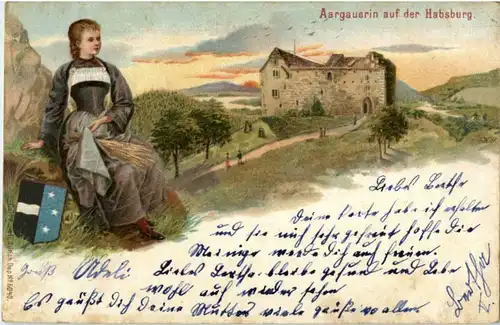 Aargauerin auf der Habsburg.
Liebe Bertha
Deine Karte habe ich erhalten
und sie mich sehr gefreut hoffe die
Meinige werde dich auch freuen.
Liebe Bertha bleibe gesund und Lebe
wohl auf wieder sehen
Es grüßt dich Deine Mutter viele grüße von allen
Gruß Adeli
Bertha